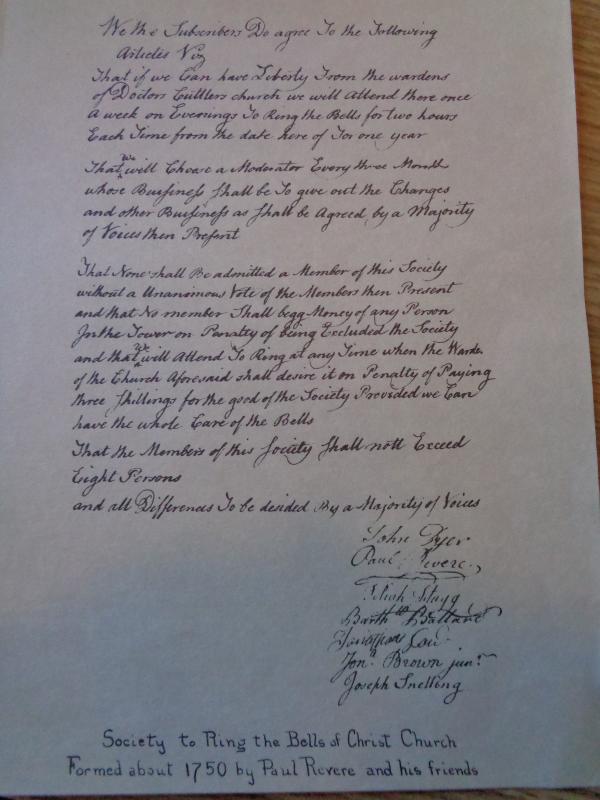 We the Subscribers Do agree To the Following
Articles Viz
That if we Can have Liberty From the wardens
of Doctors Cuttlers church we will Attend there once
A week on Evenings To Ring the Bells for two hours
Each Time from the date here of For one year
That we will Choose a Moderator Every three Month
whose Bussiness Shall be To give out the Changes
and other Bussiness as Shall be Agreed by a Majority
of Voices then Present
That None shall Be admitted a Member of this Society
without a Unanimous Vote of the Members then Present
and that No member Shall begg Money of any Person
In the Tower on Penalty of being Excluded the Society
and that we will Attend To Ring at any Time when the Warden
of the Church Aforesaid shall desire it on Penalty of Paying
three Shillings for the good of the Society Provided we Can
have the whole Care of the Bells
That the Members of this Society Shall nott Exceed
Eight Persons
and all Differences To be desided By a Majority of Voices
John Dyer
Paul Revere
Barthw Ballard
Jonathan Law
Jona. Brown junr.
Joseph Snelling
Society to Ring the Bells of Christ Church
Formed about 1750 by Paul Revere and his friends